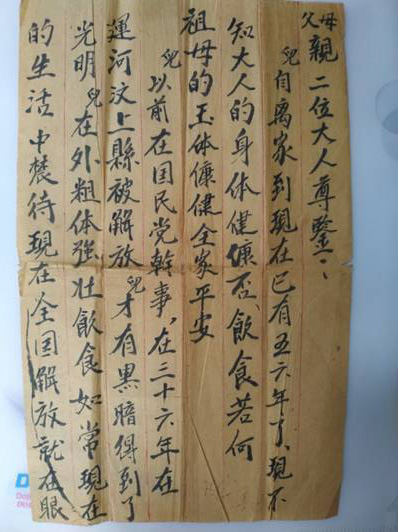 父母親二位大人尊鑒
兒自離家到現在已有五六年了、現不
知大人的身体健慷否、飲食若何
祖母的玉体慷健全家平安
兒以前在国民党幹事，在三十六年在
運河汶上縣被解放兒才有黑暗得到了
光明兒在外粗体強壮飲食如常現在
的生活中待現在全国解放就在眼